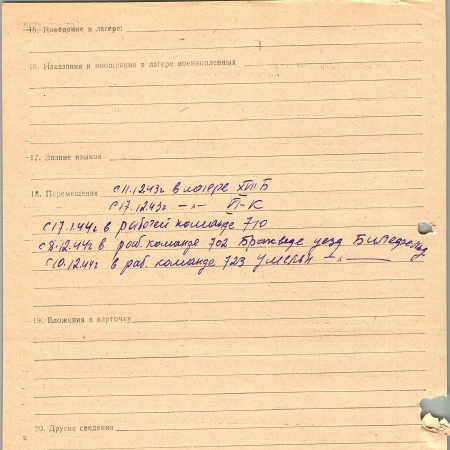 15. Поведение в лагере:
16. Наказания и поощрения в лагере военнопленных
17. Знание языков
18. Перемещения с 11.12.43г в лагере XVIII Б
с 17.12.43г. —„— VI-К
с 17.1.44г в рабочей команде 710
с 8.12.44г в раб. команде 702 Браквede уезд Билефельд
с 10.12.44г в раб. команде 723 —„—
19. Вложения в карточку
20. Другие сведения